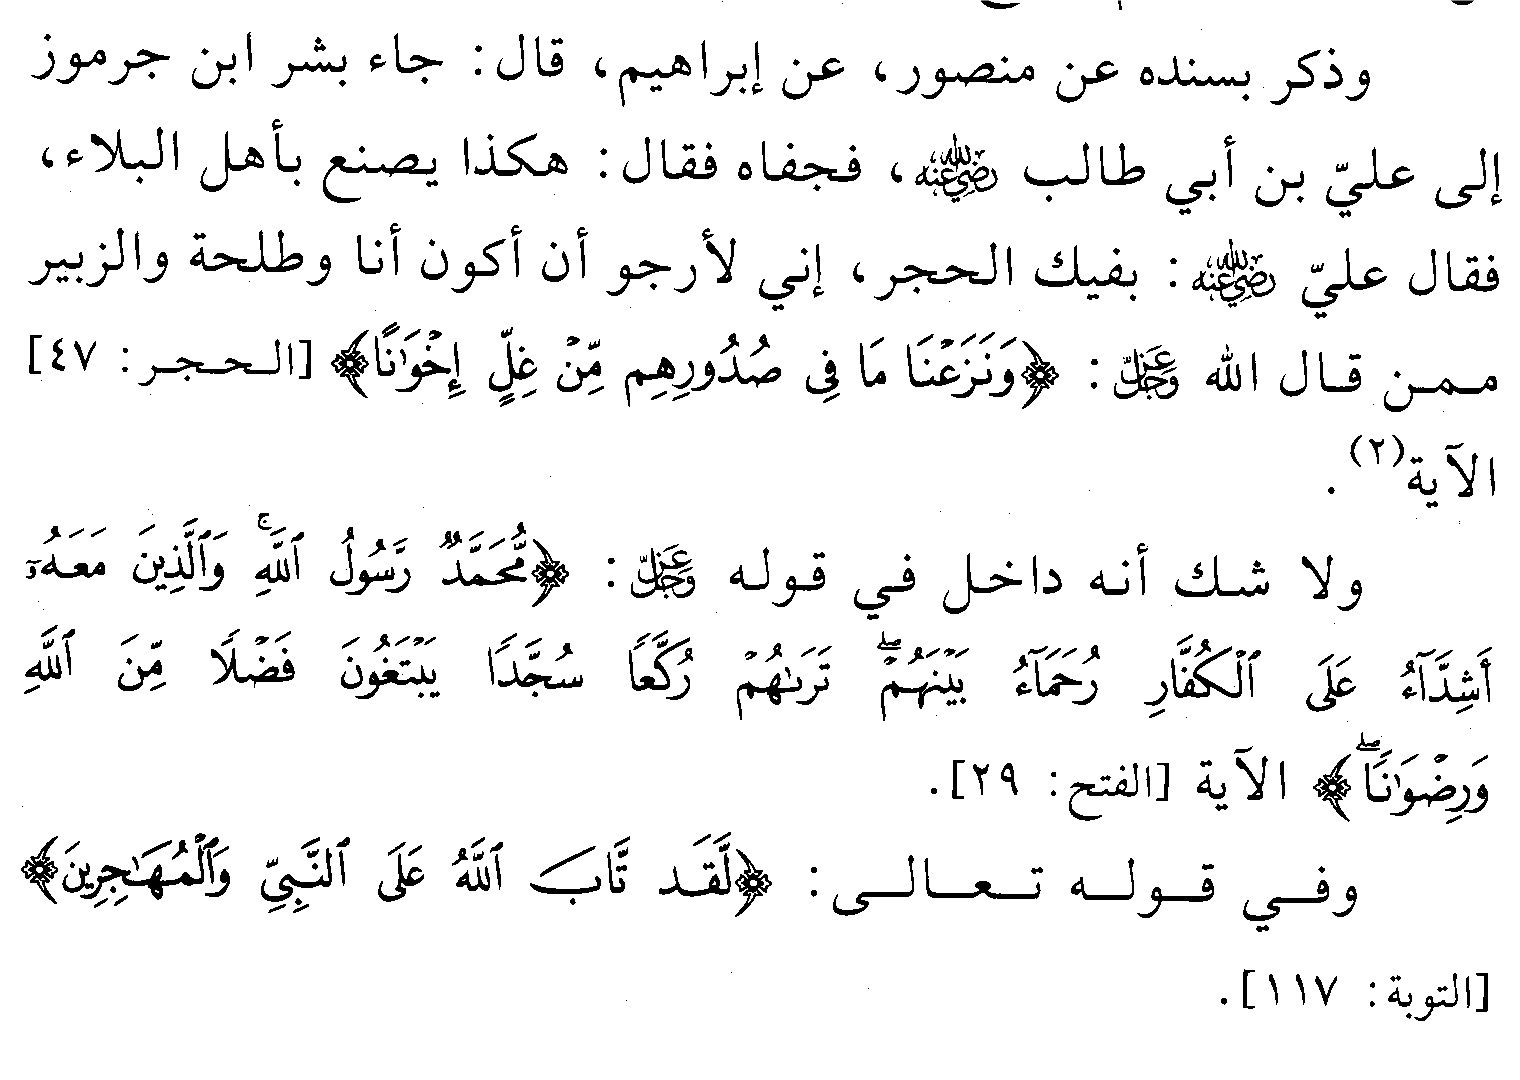 وذكر بسنده عن منصور، عن إبراهيم، قال: جاء بشر ابن جرموز
إلى عليّ بن أبي طالب رضي الله عنه، فجفاه فقال: هكذا يصنع بأهل البلاء،
فقال عليّ رضي الله عنه: بفيك الحجر، إني لأرجو أن أكون أنا وطلحة والزبير
ممن قال الله عز وجل: ﴿وَنَزَعْنَا مَا فِى صُدُورِهِم مِّنْ غِلٍّ إِخْوَٰنًا﴾ [الحجر: ٤٧]
الآية(٢).
ولا شك أنه داخل في قوله عز وجل: ﴿مُّحَمَّدٌ رَّسُولُ ٱللَّهِۚ وَٱلَّذِينَ مَعَهُۥٓ
أَشِدَّآءُ عَلَى ٱلْكُفَّارِ رُحَمَآءُ بَيْنَهُمْۖ تَرَىٰهُمْ رُكَّعًا سُجَّدًا يَبْتَغُونَ فَضْلًا مِّنَ ٱللَّهِ
وَرِضْوَٰنًاۖ﴾ الآية [الفتح: ٢٩].
وفي قوله تعالى: ﴿لَّقَد تَّابَ ٱللَّهُ عَلَى ٱلنَّبِىِّ وَٱلْمُهَٰجِرِينَ﴾
[التوبة: ١١٧].